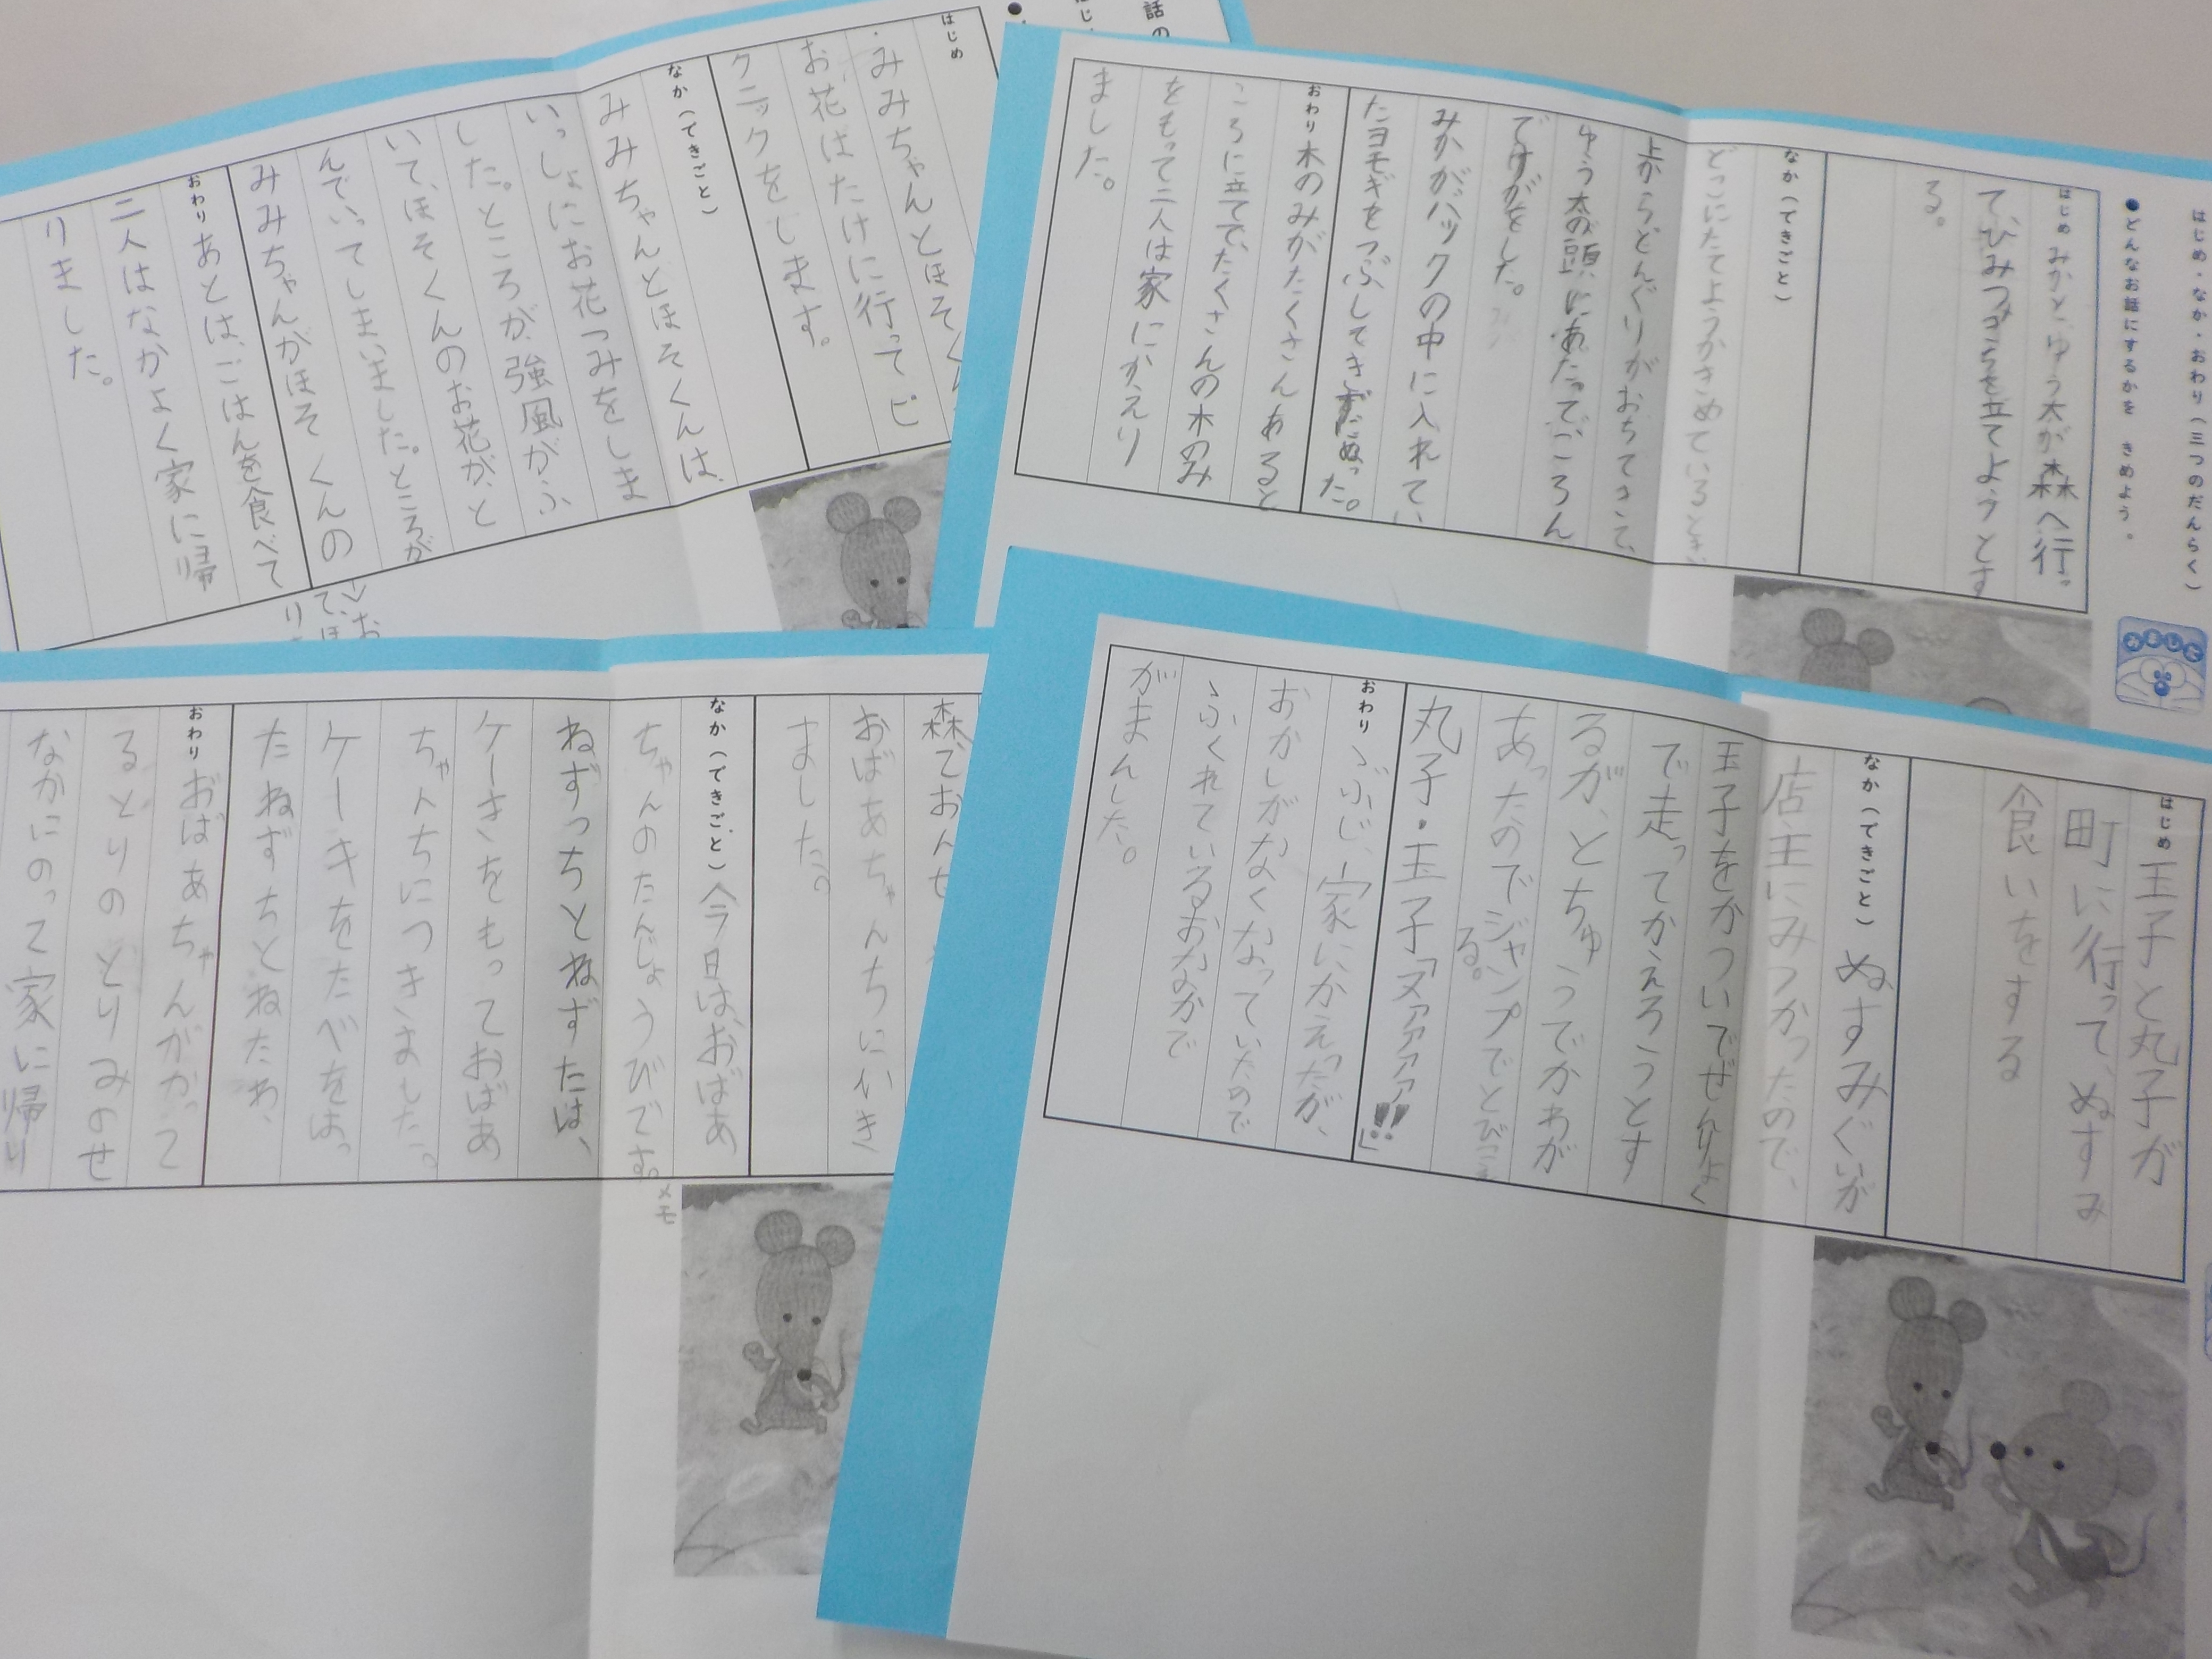 はじめ
みみちゃんとほそく
お花はたけに行って ピ
クニックをします。
なか(できごと)
みみちゃんとほそくんは、
いっしょにお花つみをしま
した。ところが、強風がふ
いて、ほそくんのお花が、と
んでいってしまいました。ところが
みみちゃんがほそくんの
おわり
あとは、ごはんを食べて
二人はなかよく家に帰
りました。
はじめ・なか・おわり(三つのだんらく)
●どんなお話にするかを きめよう。
はじめ
みかとゆう太が森へ行っ
て、ひみつきちを立てようとす
る。
なか(できごと)
どこにたてようかきめているとき、
上からどんぐりがおちてきて、
ゆう太の頭にあたってころん
でけがをした。
みかがバックの中に入れてい
たヨモギをつぶしてきずにぬった。
おわり
木のみがたくさんあると
ころに立てて、たくさんの木のみ
をもって二人は家にかえり
ました。
森でおんせ
おばあちゃんちにいき
ました。
なか(できごと)
今日は、おばあ
ちゃんのたんじょうびです。
ねずっちとねずたは、
ケーキをもっておばあ
ちゃんちにつきました。
ケーキをたべをはっ
たねずちとねたわ、
おわり
おばあちゃんがかって
るとりのとりみのせ
なかにのって家に帰り
メモ
はじめ
玉子と丸子が
町に行って、ぬすみ
食いをする
なか(できごと)
ぬすみぐいが
店主にみつかったので、
玉子をかついでぜんりょく
で走ってかえろうとす
るが、とちゅうでかわが
あったのでジャンプでとびこえ
る。
丸子・玉子「ヌアアアア!!」
おわり
、ぶじ、家にかえったが、
おかしがなくなっていたので
、ふくれているおなかで
がまんした。